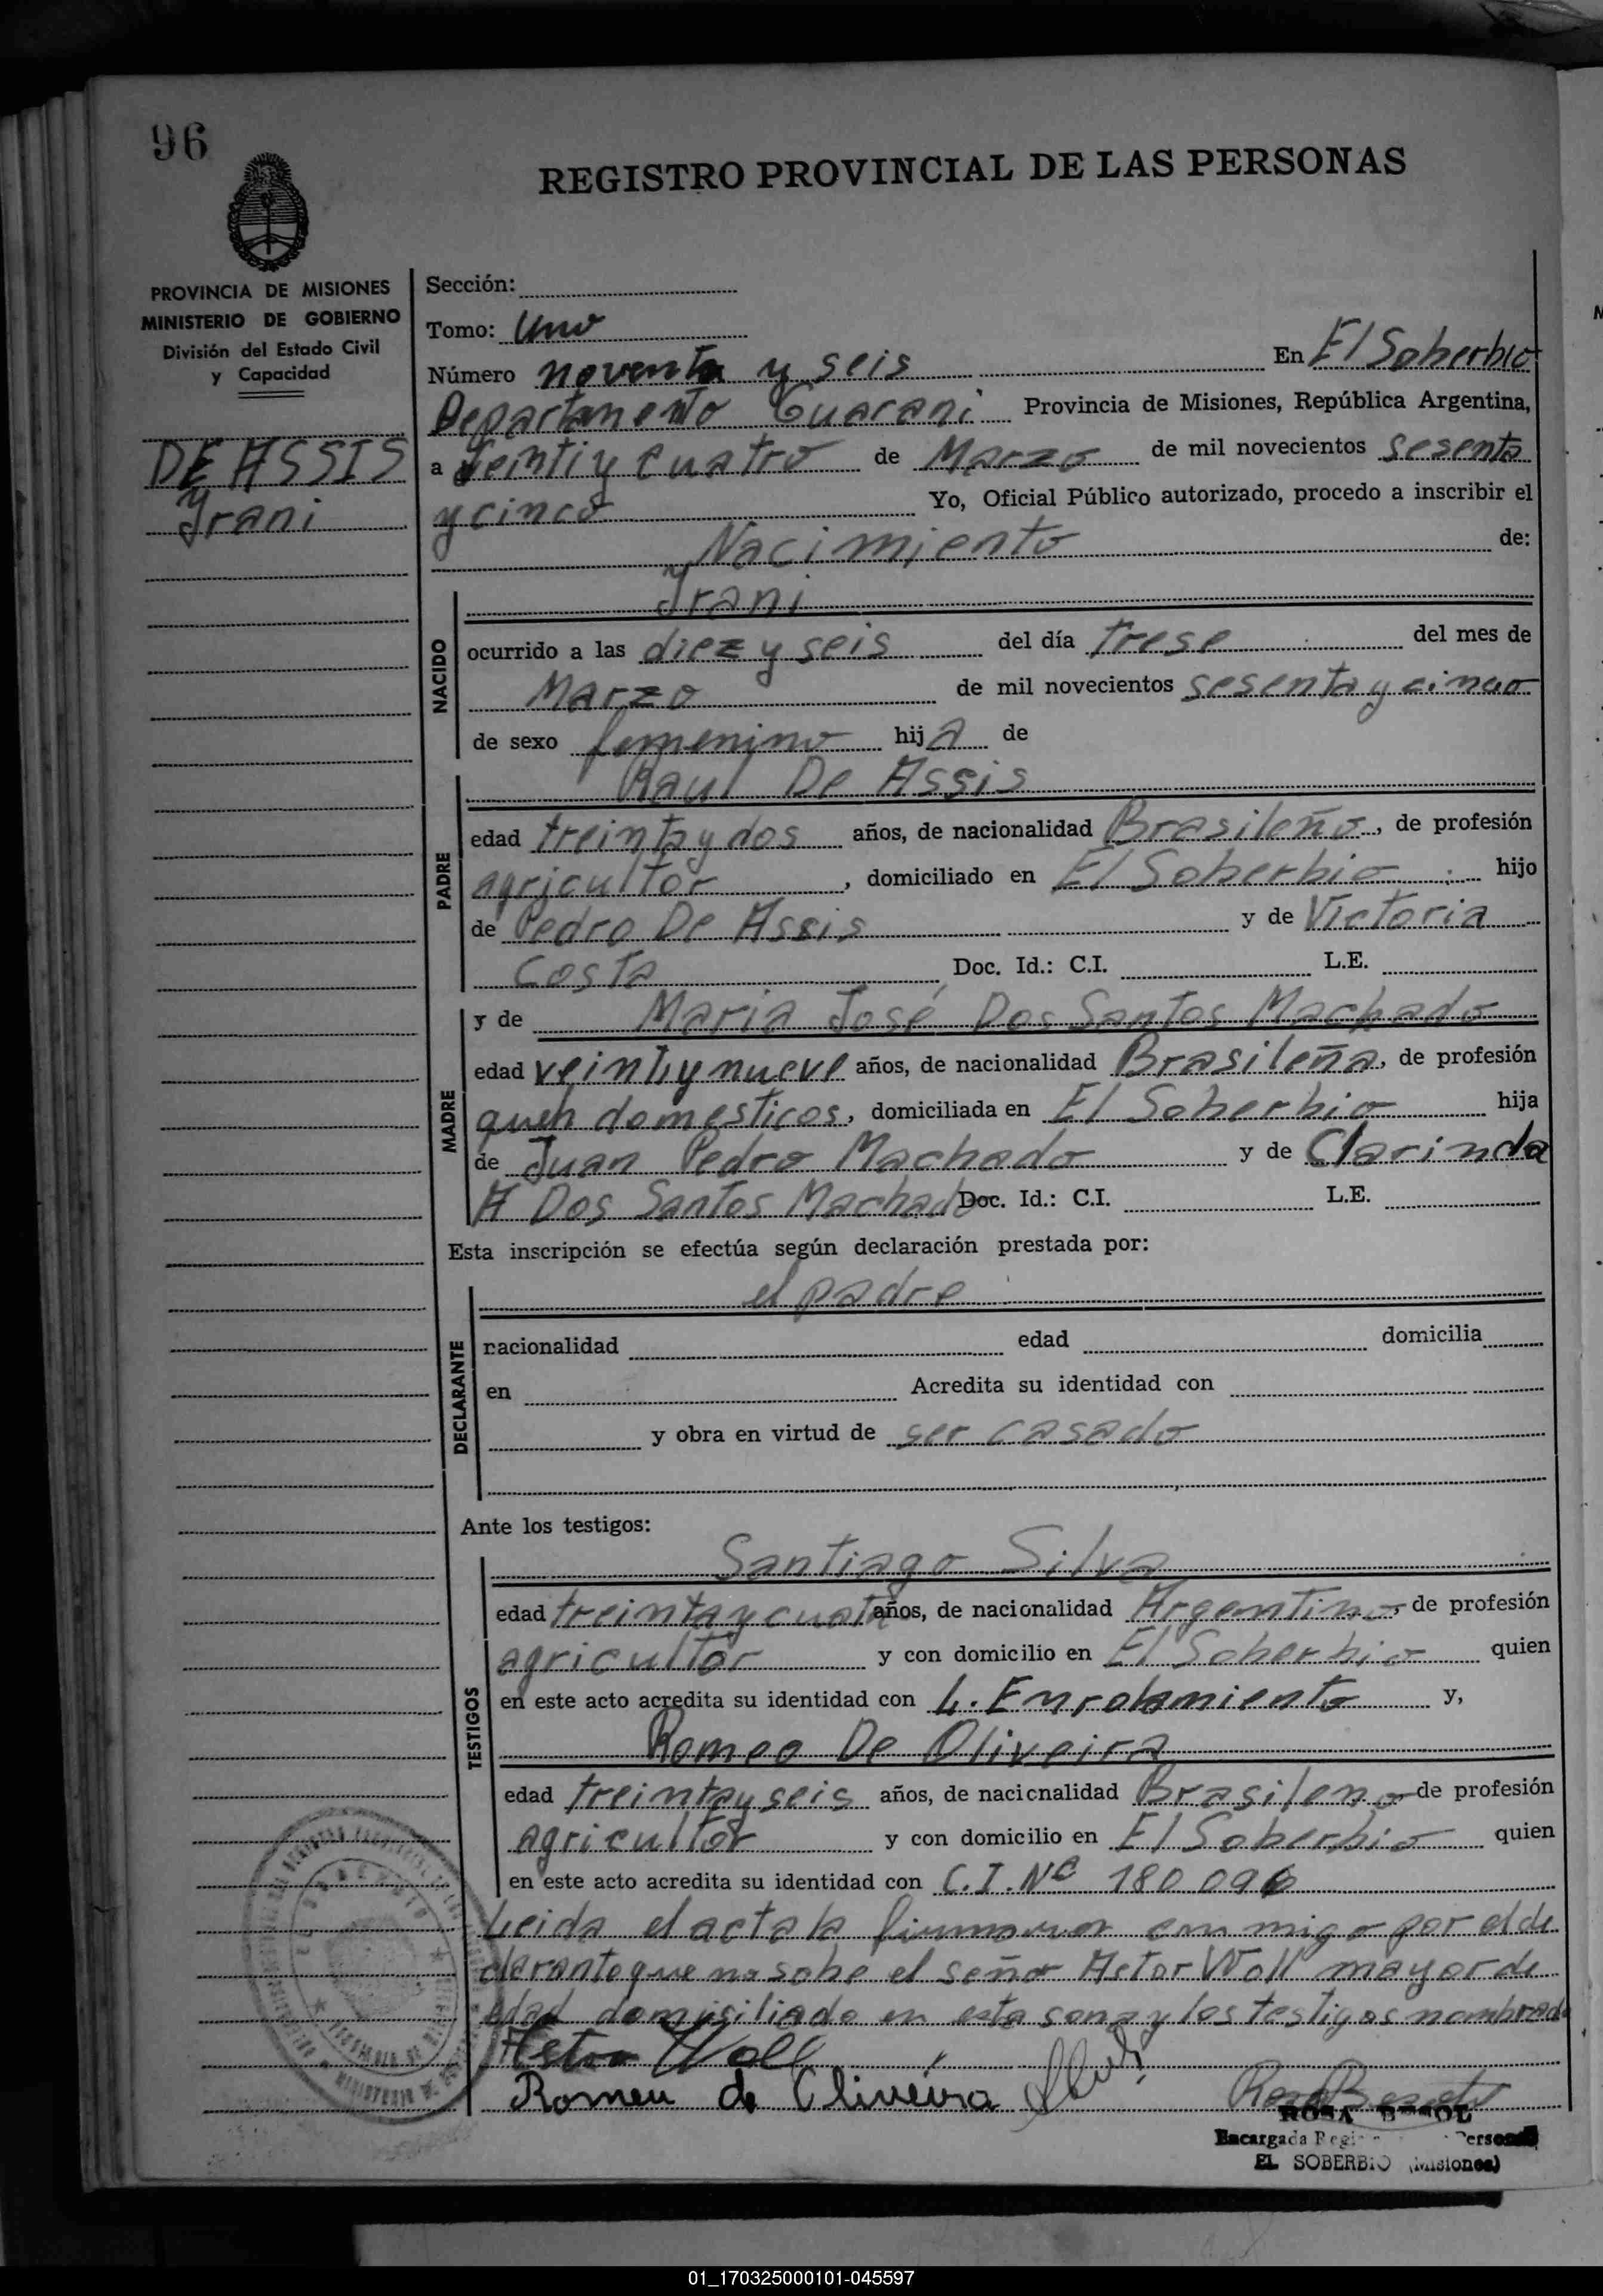 96
REGISTRO PROVINCIAL DE LAS PERSONAS
PROVINCIA DE MISIONES
MINISTERIO DE GOBIERNO
División del Estado Civil
y Capacidad
DE ASSIS
Yrani
Sección:
Tomo: Uno
Número noventa y seis En El Soberbio
Departamento Guarani Provincia de Misiones, República Argentina,
a veinti y cuatro de Marzo de mil novecientos sesenta
y cinco Yo, Oficial Público autorizado, procedo a inscribir el
Nacimiento de:
NACIDO
Yrani
ocurrido a las diez y seis del día trese del mes de
Marzo de mil novecientos sesenta y cinco
de sexo femenino hija de
PADRE
Raul De Assis
edad treinta y dos años, de nacionalidad Brasileño, de profesión
agricultor, domiciliado en El Soberbio hijo
de Pedro De Assis y de Victoria
Costa Doc. Id.: C.I. L.E.
MADRE
y de Maria José Dos Santos Machado
edad veinti y nueve años, de nacionalidad Brasileña, de profesión
queh domesticos, domiciliada en El Soberbio hija
de Juan Pedro Machado y de Clarinda
A Dos Santos Machado Doc. Id.: C.I. L.E.
Esta inscripción se efectúa según declaración prestada por:
DECLARANTE
el padre
nacionalidad edad domicilia
en Acredita su identidad con
y obra en virtud de ser casado
Ante los testigos:
TESTIGOS
Santiago Silva
edad treinta y cuatro años, de nacionalidad Argentino, de profesión
agricultor y con domicilio en El Soberbio quien
en este acto acredita su identidad con L. Enrolamiento y,
Romeo De Oliveira
edad treinta y seis años, de nacionalidad Brasileno de profesión
agricultor y con domicilio en El Soberbio quien
en este acto acredita su identidad con C.I. Nº 180 096
Leida el acta la firmaron conmigo por el de
clarante que no sabe el señor Astor Woll mayor de
edad domisiliado en esta sona y los testigos nombrado
Astor Woll
Romeu de Oliveira
ROSA
Encargada
EL SOBERBIO (Misiones)
01_170325000101-045597